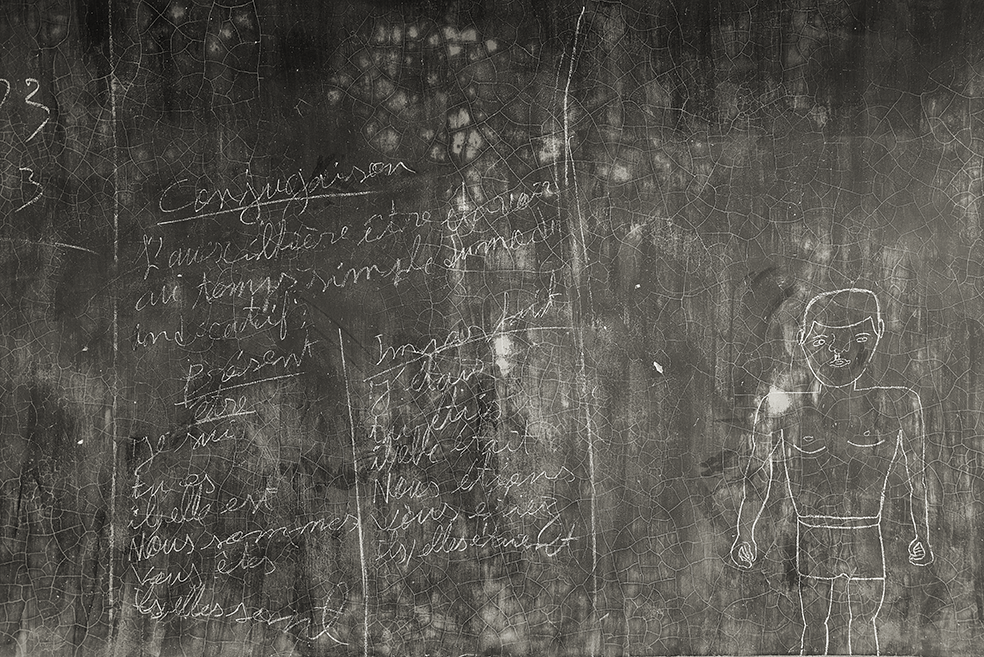 23
3
Conjugaison
L'auxilière être
au temps simple du mode
indicatif:
Présent
être
Je suis
tu es
il elle est
Nous sommes
Vous êtes
ils elles sont
Imparfait
J'étais
il elle était
Nous étions
Vous étiez
ils elles étaient